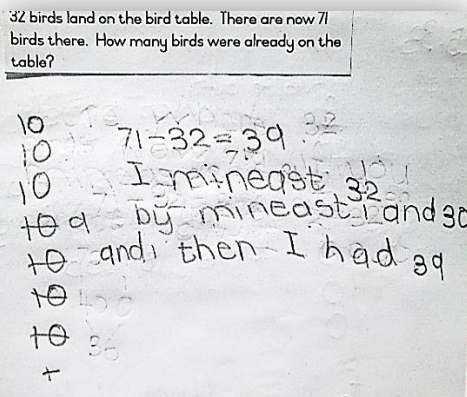 32 birds land on the bird table. There are now 71
birds there. How many birds were already on the
table?
10
10
10
10 9
10
10
10
1
71-32=39
I mineast 32
by mineast 1 and 30
and then I had 39